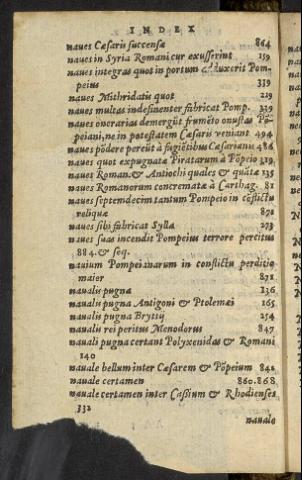 INDEX
naues Cæsaris succensæ 864
naues in Syria Romani cur exusserint 159
naues integras quot in portum adduxerit Pom-
peius 339
naues Mithridatis quot 219
naues multas indesinenter fabricat Pomp. 339
naues onerarias demergũt frumẽto onustas Põ-
peiani, ne in potestatem Cæsaris veniant 494
naues põdere pereũt à fugiẽtibus Cæsarianis 486
naues quot expugnatæ Piratarum à Põpeio 319
naues Roman. & Antiochi quales & quãtæ 135
naues Romanorum concrematæ à Carthag. 81
naues septemdecim tantum Pompeio in cõflictu
reliquæ 871
naues sibi fabricat Sylla 273
naues suas incendit Pompeius terrore percitus
884. & seq.
nauium Pompeianarum in conflictu perditio
maior 871
naualis pugna 136
naualis pugna Antigoni & Ptolemæi 165
naualis pugna Brytij 254
naualis rei peritus Menodorus 847
nauali pugna certant Polyxenidas & Romani
140
nauale bellum inter Cæsarem & Põpeium 841
nauale certamen 860.868
nauale certamen inter Cassium & Rhodienses
332
nauale